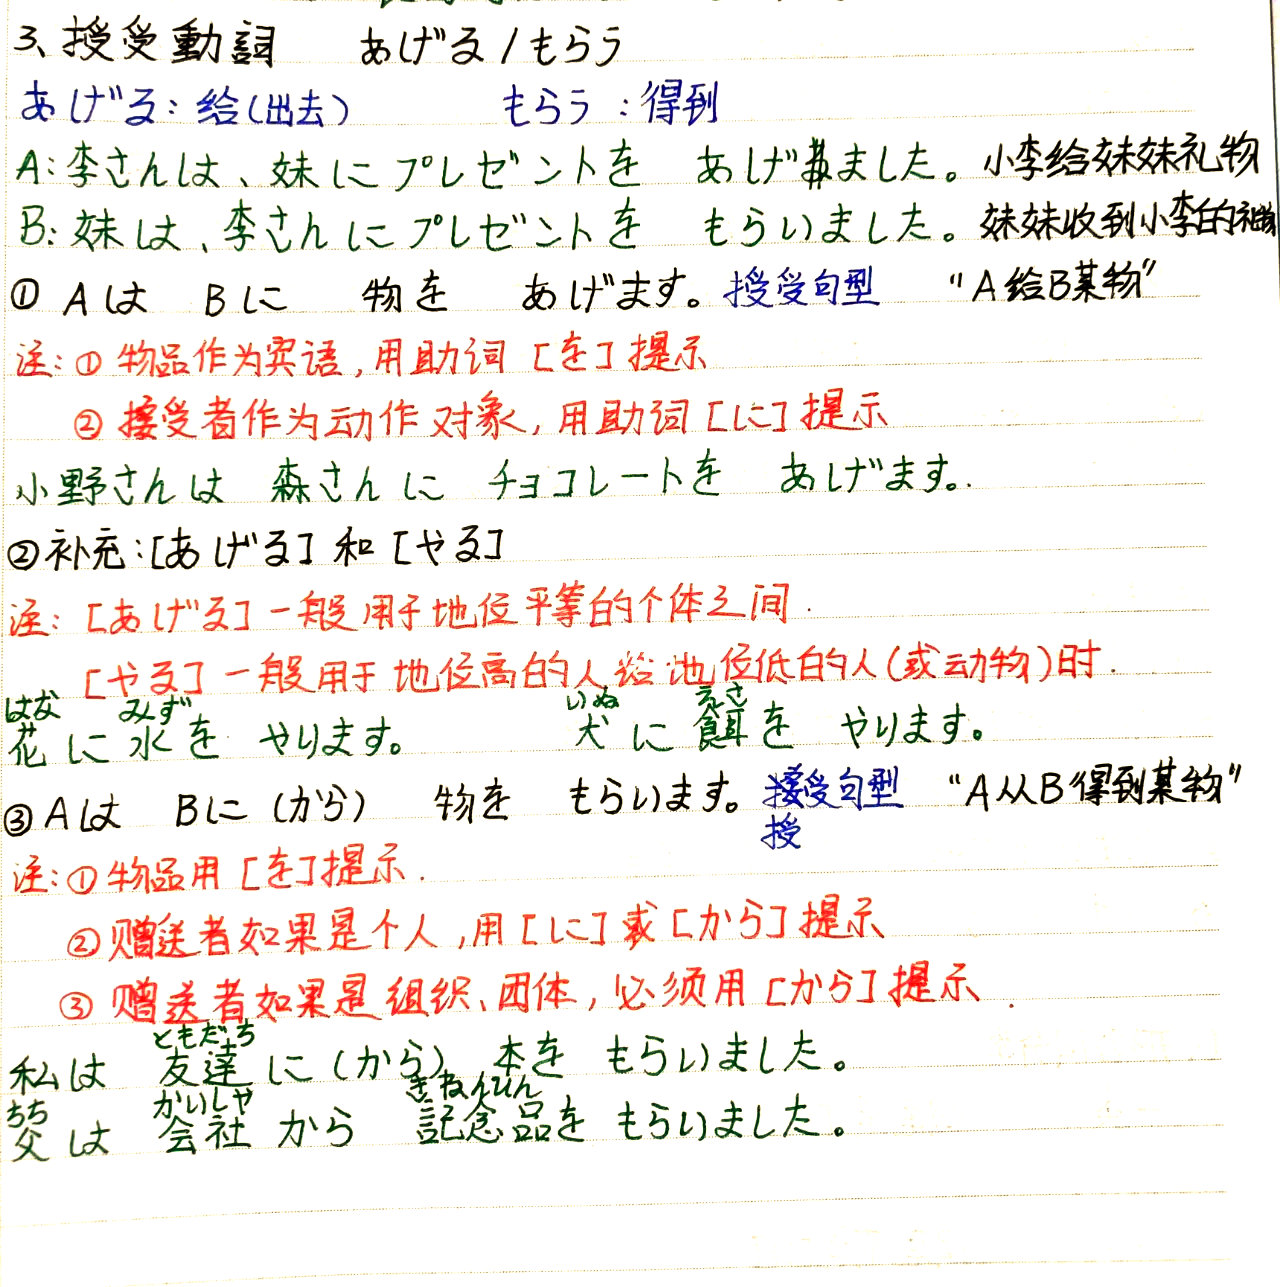 3、授受動詞 あげる/もらう
あげる：给(出去) もらう：得到
A:李さんは、妹にプレゼントを あげました。小李给妹妹礼物
B:妹は、李さんにプレゼントを もらいました。妹妹收到小李的礼物
① Aは Bに 物を あげます。授受句型 "A给B某物"
注:①物品作为宾语,用助词[を]提示
②接受者作为动作对象,用助词[に]提示
小野さんは 森さんに チョコレートを あげます。
②补充:[あげる]和[やる]
注:[あげる]一般用于地位平等的个体之间.
[やる]一般用于地位高的人给地位低的人(或动物)时.
はな みず いぬ えさ
花に水を やります。 犬に餌を やります。
③Aは Bに(から) 物を もらいます。接受句型 "A从B得到某物"
授
注:①物品用[を]提示.
②赠送者如果是个人,用[に]或[から]提示
③赠送者如果是组织、团体,必须用[から]提示.
ともだち
私は 友達に(から) 本を もらいました。
ちち かいしゃ きねんひん
父は 会社から 記念品を もらいました。